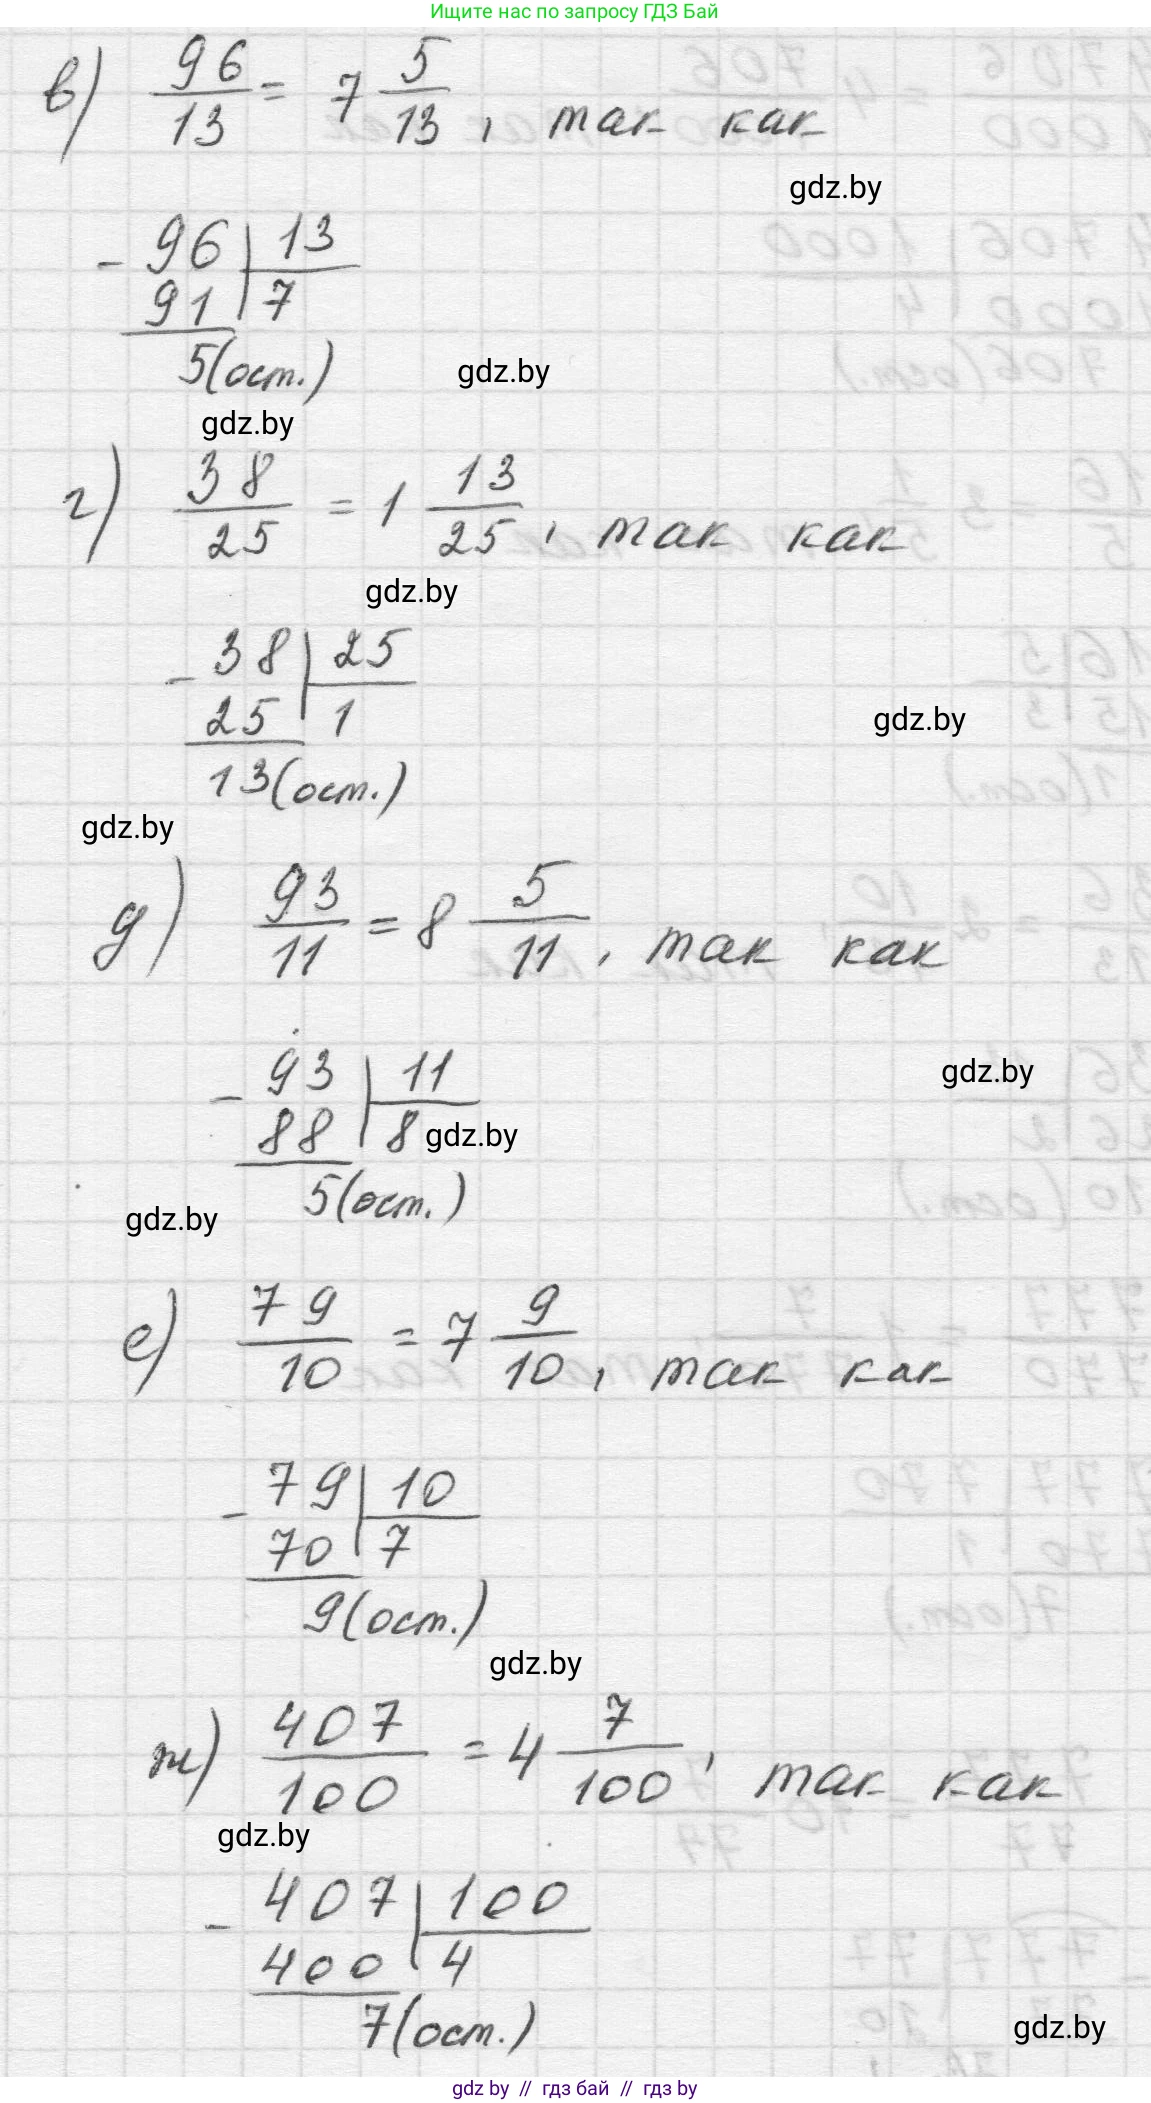 Ищите нас по запросу ГДЗ Бай
в) 96/13 = 7 5/13, так как
gdz.by
- 96 | 13
91 | 7
5 (ост.)
gdz.by
gdz.by
г) 38/25 = 1 13/25, так как
gdz.by
- 38 | 25
25 | 1
gdz.by
13 (ост.)
gdz.by
д) 93/11 = 8 5/11, так как
- 93 | 11
gdz.by
88 | 8
gdz.by
5 (ост.)
gdz.by
е) 79/10 = 7 9/10, так как
- 79 | 10
70 | 7
9 (ост.)
gdz.by
ж) 407/100 = 4 7/100, так как
gdz.by
- 407 | 100
400 | 4
7 (ост.)
gdz.by
gdz by // гдз бай // гдз by